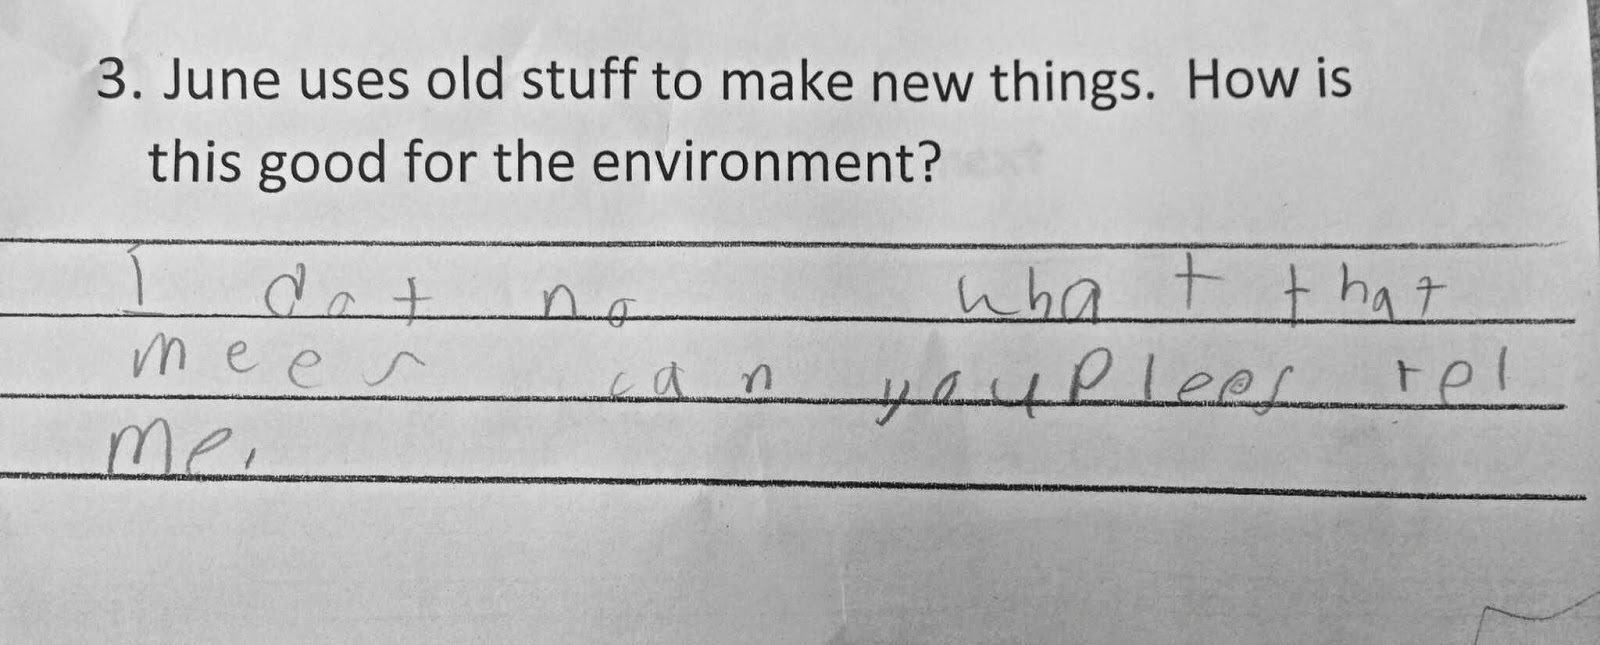 3. June uses old stuff to make new things. How is
this good for the environment?
I dot no what that
meen can you plees tel
me.